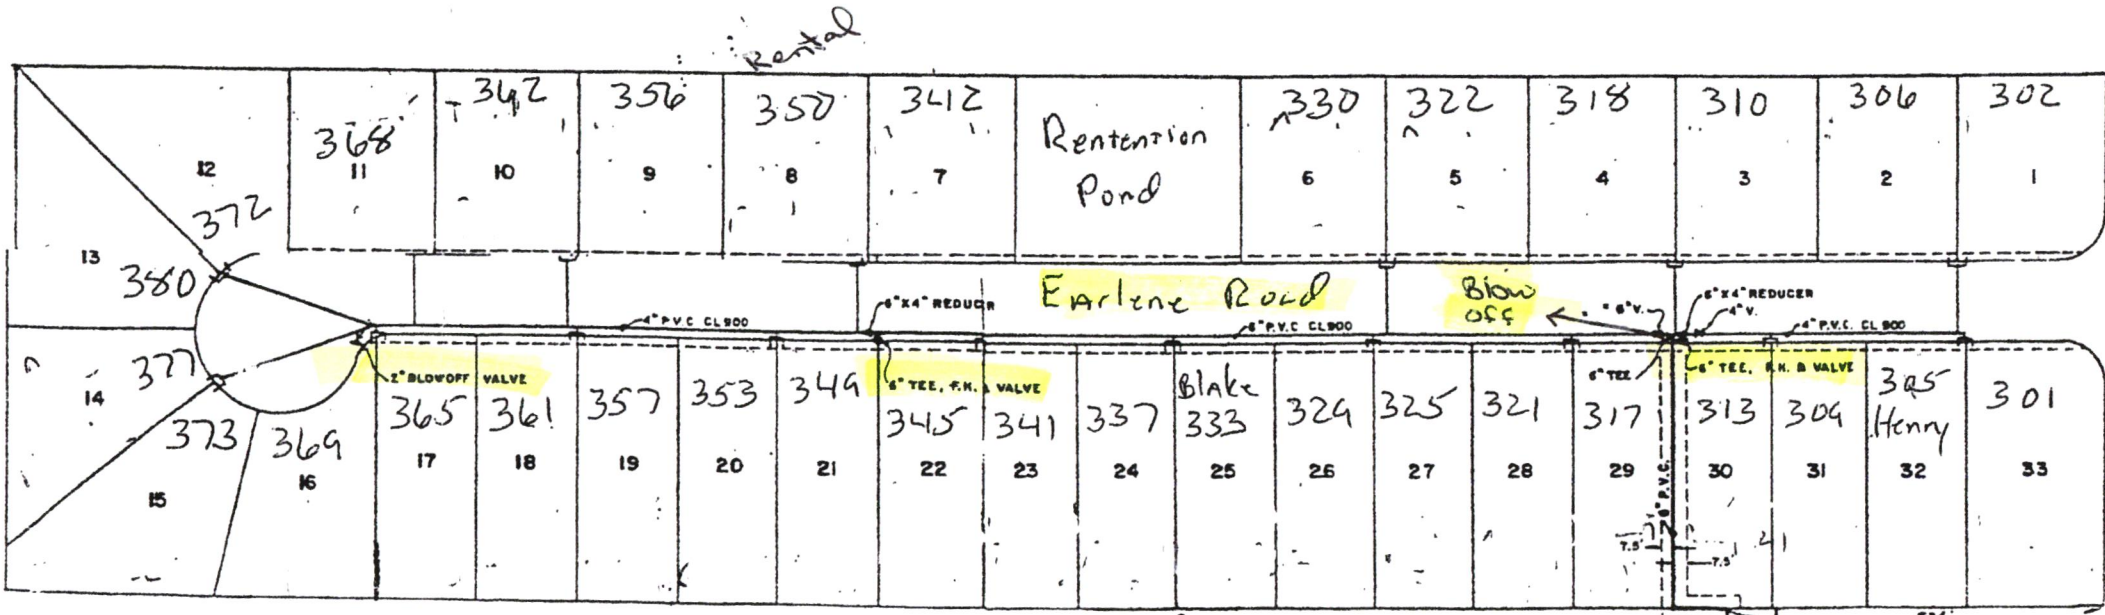 Rental
368
342
356
350
3412
Rentention
Pond
330
322
318
310
306
302
12
11
10
9
8
7
6
5
4
3
2
1
372
13
380
6" X 4" REDUCER
Earlene Road
Blow
off
6" V.
6" X 4" REDUCER
4" V.
4" P.V.C. CL 900
6" P.V.C. CL 900
4" P.V.C. CL 900
377
14
2" BLOWOFF VALVE
6" TEE, F.H. & VALVE
6" TEE
6" TEE, F.H. & VALVE
373
369
365
361
357
353
349
345
341
337
Blake
333
329
325
321
317
313
309
305
Henry
301
15
16
17
18
19
20
21
22
23
24
25
26
27
28
29
30
31
32
33
6" P.V.C.
7.5'
7.5'